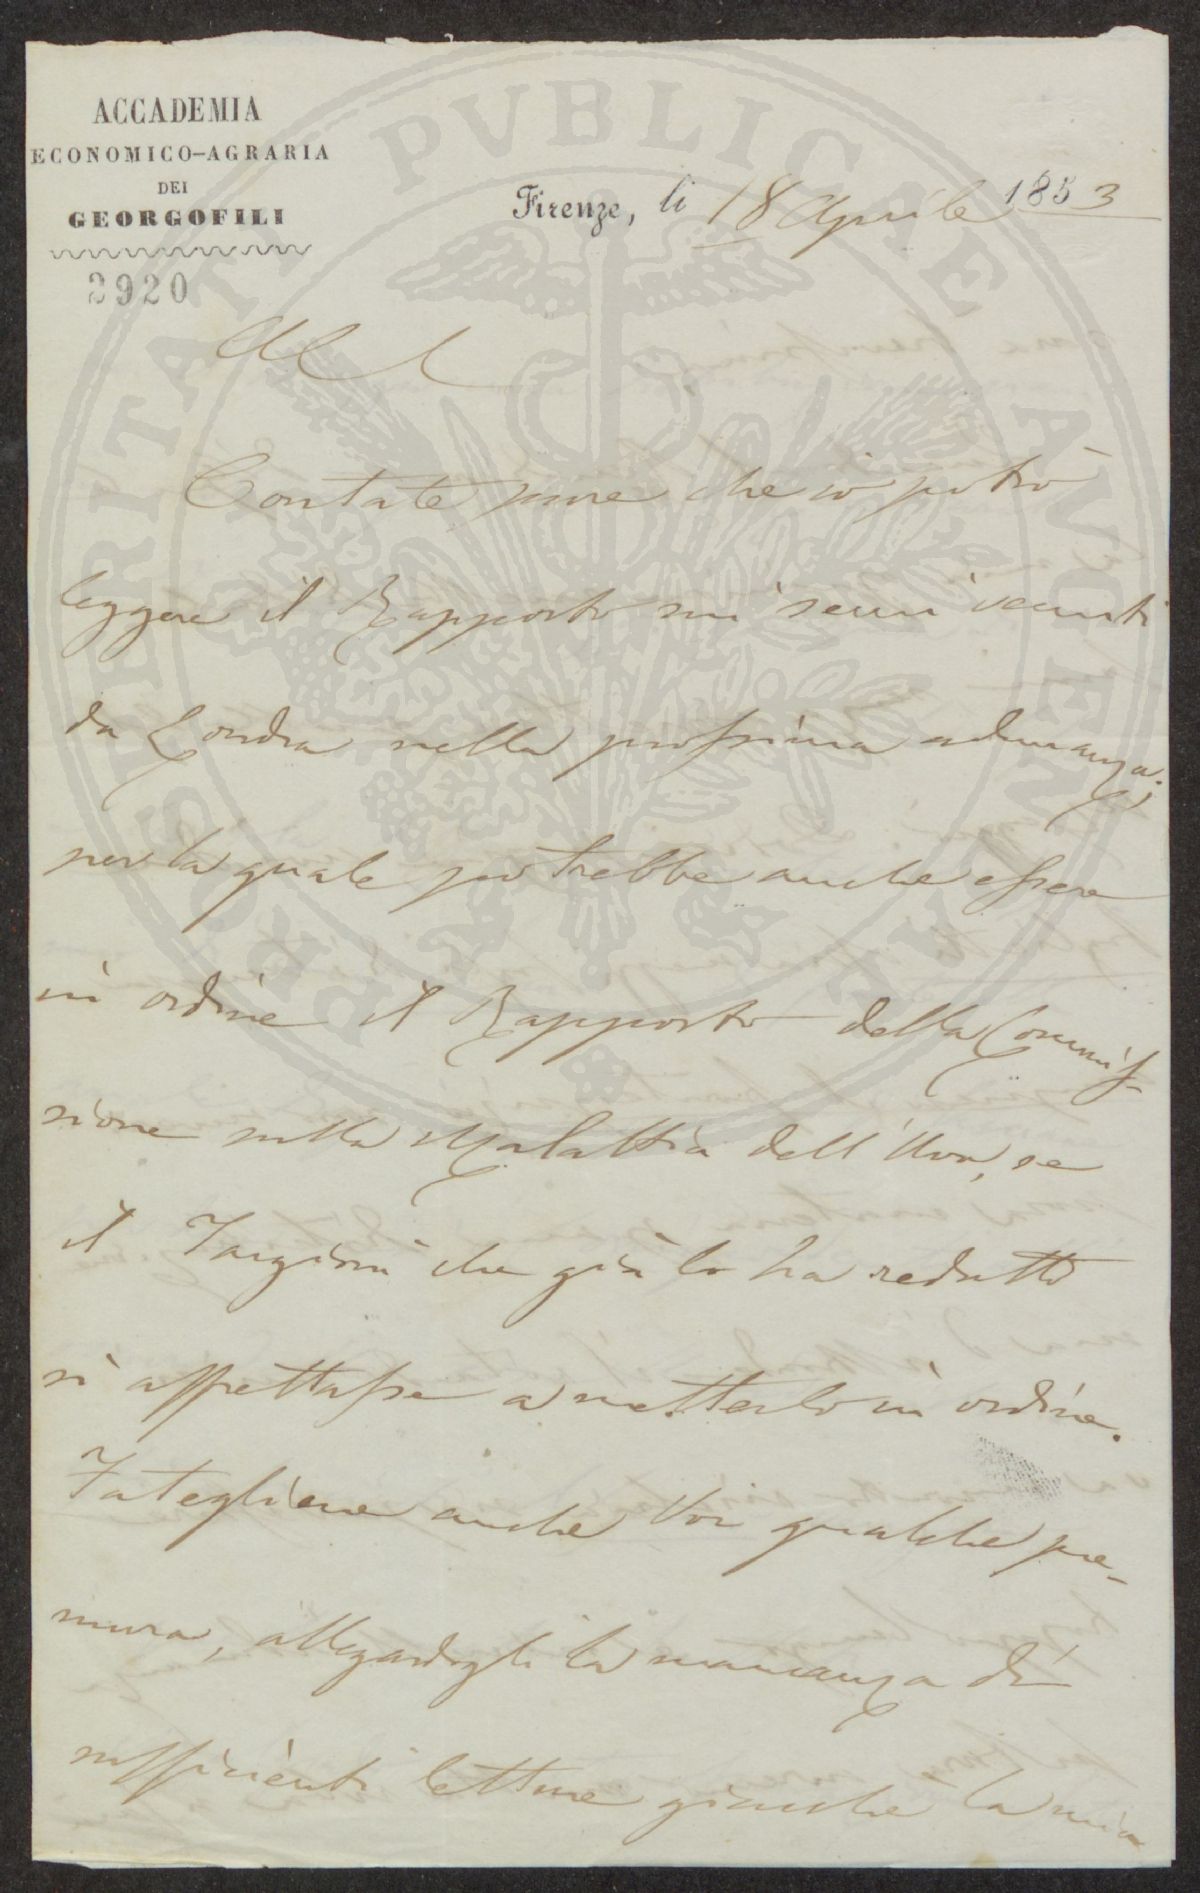 ACCADEMIA
ECONOMICO-AGRARIA
DEI
GEORGOFILI
2920
Firenze, li 18 Aprile 1853
PROSPERITATI PVBLICAE AVGENDAE
Contate pure che io potrò
leggere il Rapporto sui semi venuti
da Londra nella prossima adunanza;
per la quale potrebbe anche essere
in ordine il Rapporto della Commis-
sione sulla Malattia dell'Uva, se
il Targioni che già lo ha redatto
si affrettasse a metterlo in ordine.
Fategliene anche Voi qualche pre-
mura, allegandogli la mancanza di
sufficienti letture giacchè la mia